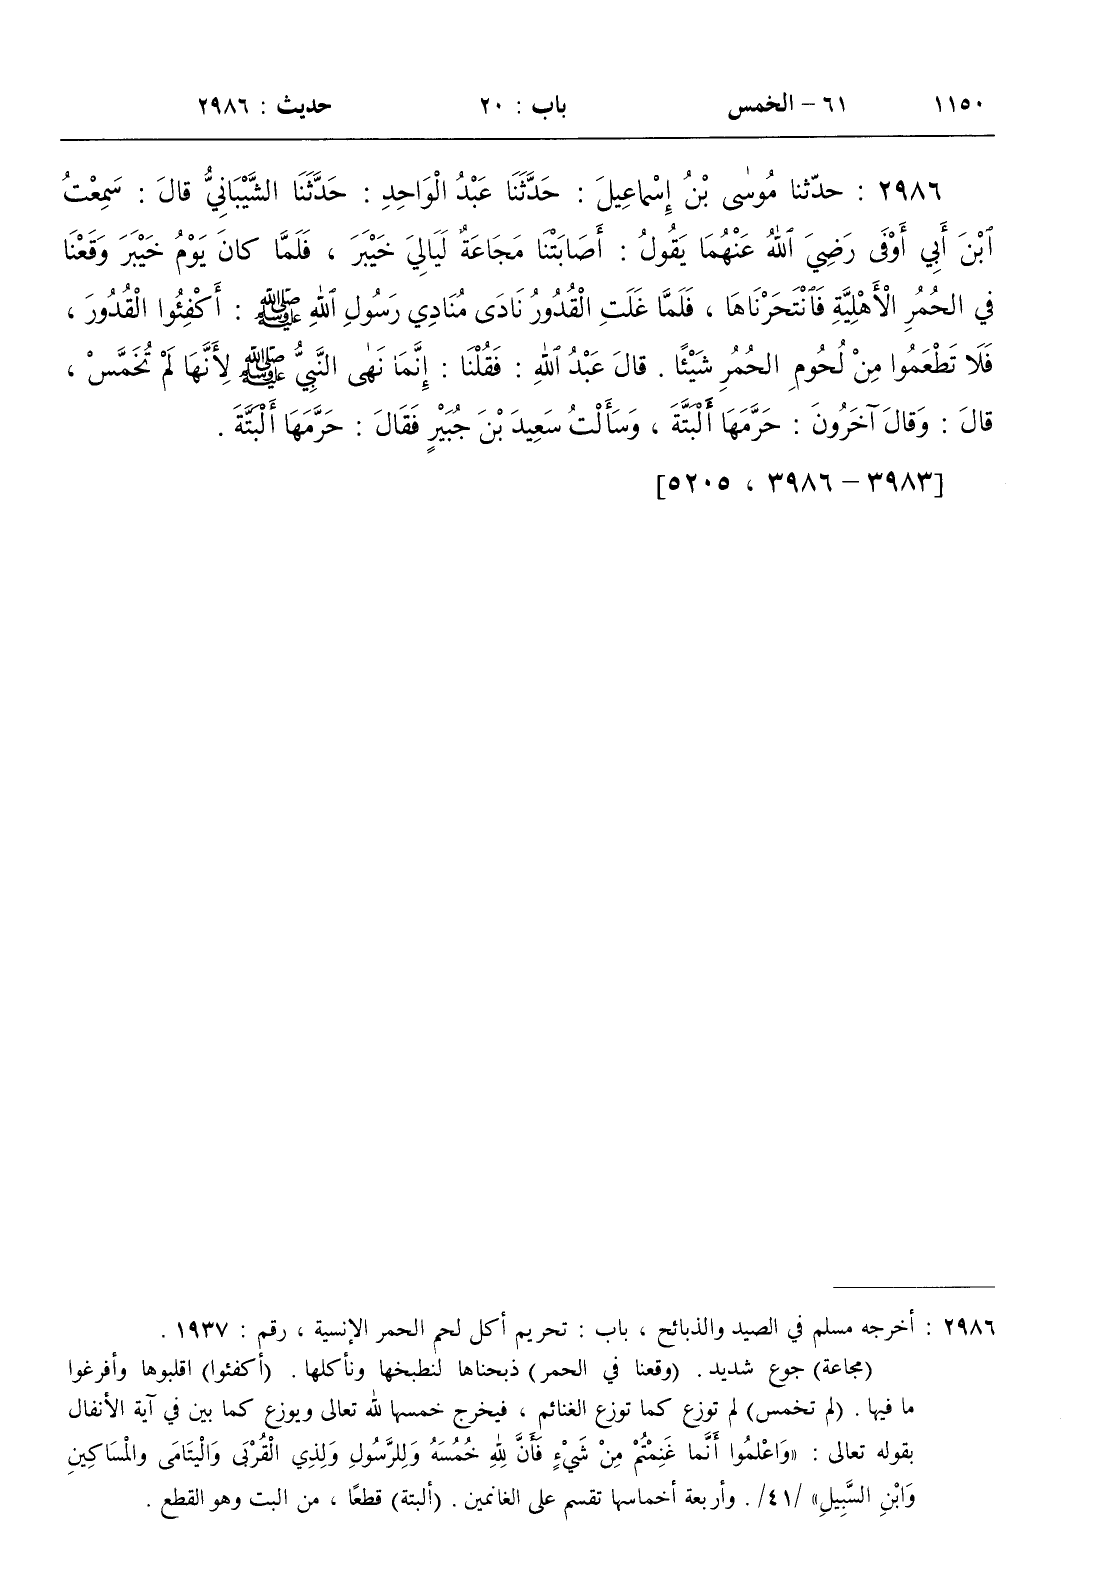 ١١٥٠ ٦١ – الخمس باب : ٢٠ حديث : ٢٩٨٦
٢٩٨٦ : حدّثنا مُوسٰى بْنُ إِسْماعِيلَ : حَدَّثَنَا عَبْدُ الْوَاحِدِ : حَدَّثَنَا الشَّيْبَانِيُّ قالَ : سَمِعْتُ
ٱبْنَ أَبِي أَوْفَى رَضِيَ ٱللهُ عَنْهُمَا يَقُولُ : أَصَابَتْنَا مَجَاعَةٌ لَيَالِيَ خَيْبَرَ ، فَلَمَّا كانَ يَوْمُ خَيْبَرَ وَقَعْنَا
في الحُمُرِ الْأَهْلِيَّةِ فَٱنْتَحَرْنَاهَا ، فَلَمَّا غَلَتِ الْقُدُورُ نَادَى مُنَادِي رَسُولِ ٱللهِ ﷺ : أَكْفِئُوا الْقُدُورَ ،
فَلَا تَطْعَمُوا مِنْ لُحُومِ الحُمُرِ شَيْئًا . قالَ عَبْدُ ٱللهِ : فَقُلْنَا : إِنَّمَا نَهٰى النَّبِيُّ ﷺ لِأَنَّهَا لَمْ تُخَمَّسْ ،
قالَ : وَقالَ آخَرُونَ : حَرَّمَهَا أَلْبَتَّةَ ، وَسَأَلْتُ سَعِيدَ بْنَ جُبَيْرٍ فَقَالَ : حَرَّمَهَا أَلْبَتَّةَ .
[٣٩٨٣ – ٣٩٨٦ ، ٥٢٠٥]
٢٩٨٦ : أخرجه مسلم في الصيد والذبائح ، باب : تحريم أكل لحم الحمر الإنسية ، رقم : ١٩٣٧ .
(مجاعة) جوع شديد . (وقعنا في الحمر) ذبحناها لنطبخها ونأكلها . (أكفئوا) اقلبوها وأفرغوا
ما فيها . (لم تخمس) لم توزع كما توزع الغنائم ، فيخرج خمسها لله تعالى ويوزع كما بين في آية الأنفال
بقوله تعالى : «وَاعْلَمُوا أَنَّما غَنِمْتُمْ مِنْ شَيْءٍ فَأَنَّ لِلهِ خُمُسَهُ وَلِلرَّسُولِ وَلِذِي الْقُرْبَى وَالْيَتَامَى والْمَسَاكِينِ
وَابْنِ السَّبِيلِ» /٤١/ . وأربعة أخماسها تقسم على الغانمين . (ألبتة) قطعًا ، من البت وهو القطع .